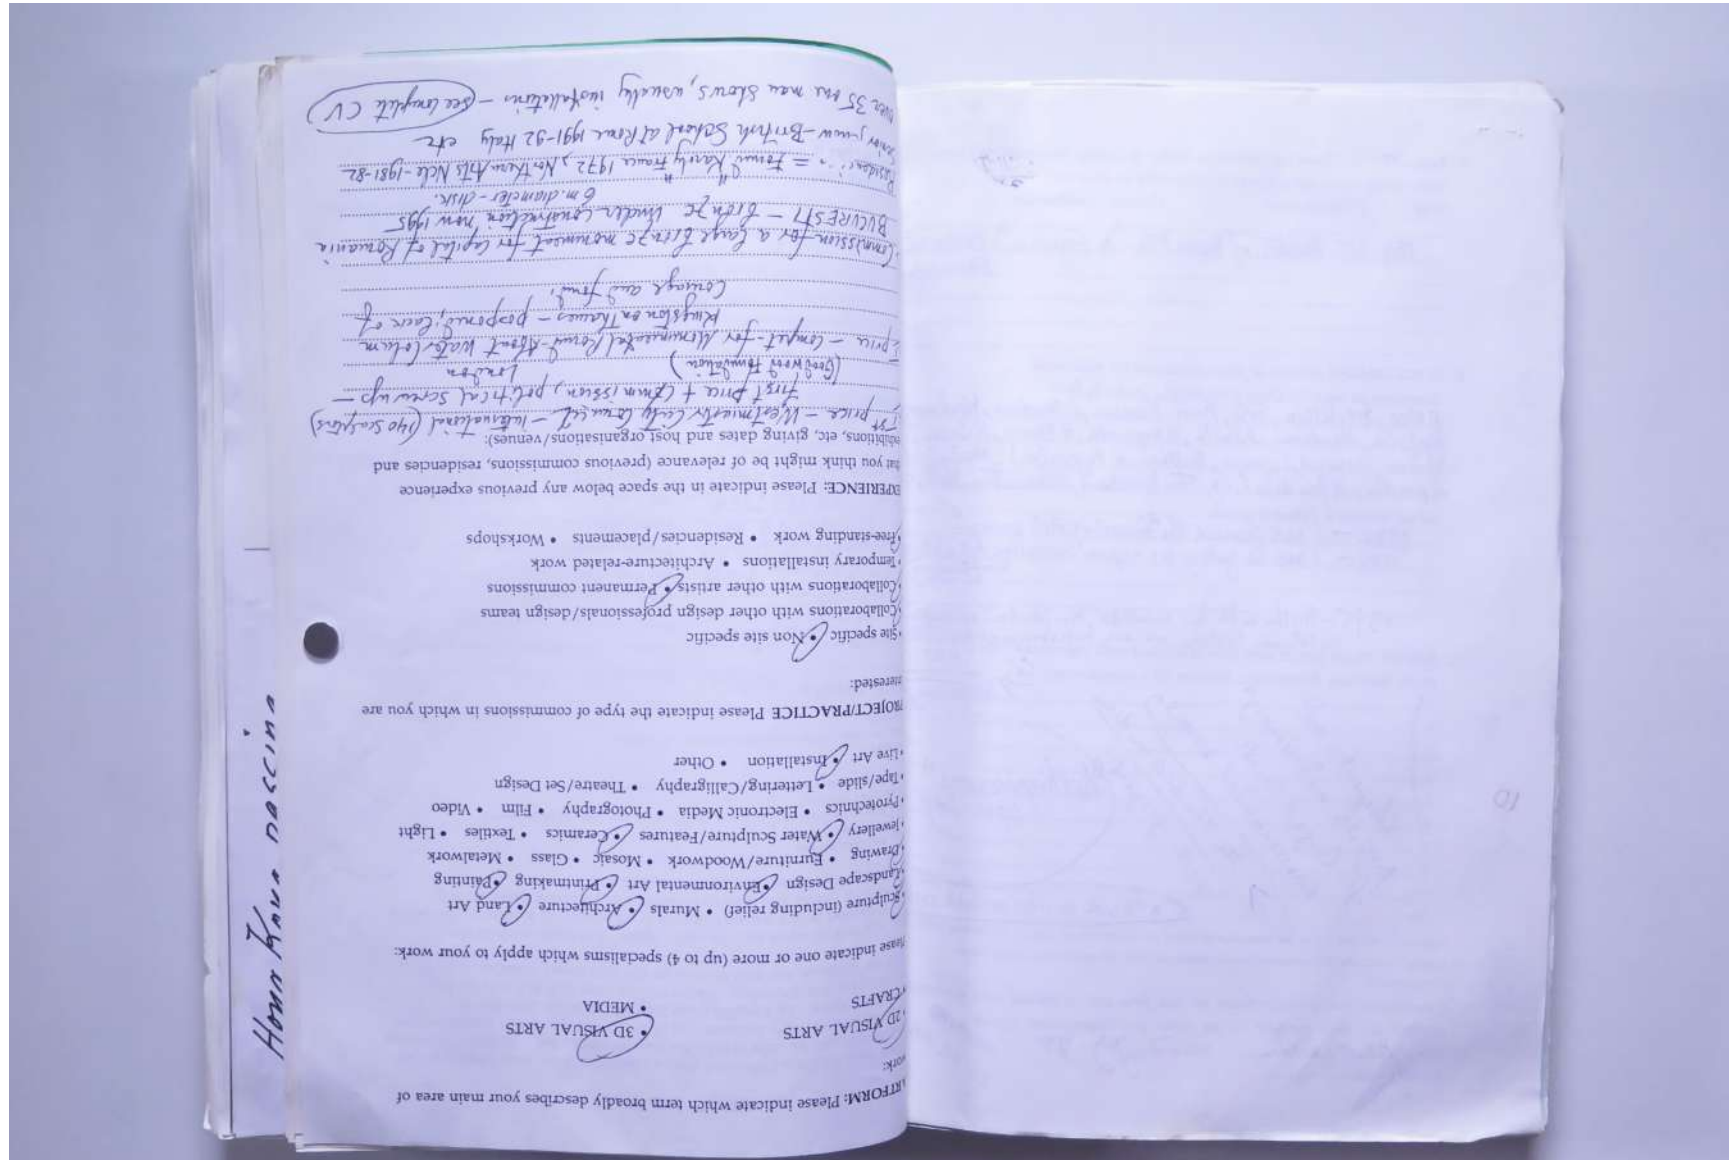 ARTFORM: Please indicate which term broadly describes your main area of
work:
• 2D VISUAL ARTS • 3D VISUAL ARTS
• CRAFTS • MEDIA
Please indicate one or more (up to 4) specialisms which apply to your work:
• Sculpture (including relief) • Murals • Architecture • Land Art
• Landscape Design • Environmental Art • Printmaking • Painting
• Drawing • Furniture/Woodwork • Mosaic • Glass • Metalwork
• Jewellery • Water Sculpture/Features • Ceramics • Textiles • Light
• Pyrotechnics • Electronic Media • Photography • Film • Video
• Tape/slide • Lettering/Calligraphy • Theatre/Set Design
• Live Art • Installation • Other
PROJECT/PRACTICE Please indicate the type of commissions in which you are
interested:
• Site specific • Non site specific
• Collaborations with other design professionals/design teams
• Collaborations with other artists • Permanent commissions
• Temporary installations • Architecture-related work
• Free-standing work • Residencies/placements • Workshops
EXPERIENCE: Please indicate in the space below any previous experience
that you think might be of relevance (previous commissions, residencies and
exhibitions, etc, giving dates and host organisations/venues):
price – Westminster City Council – international (140 sculptors)
first price + Commission, political screw up –
(Goodwood Foundation) London
price – compet – for Monumental Round-About Water Colum
Kingston on Thames – posponed, lack of
Courage and fond,
Commission for a large bronze monument for Capital of Romania
BUCURESTI – bronze under construction now 1995
6 m. diameter – disk.
France 1972, Northern Arts Ncle – 1981-82
British School at Rome 1991-92 Italy etc
over 35 one man shows, usually installations – (see complete CV)
10